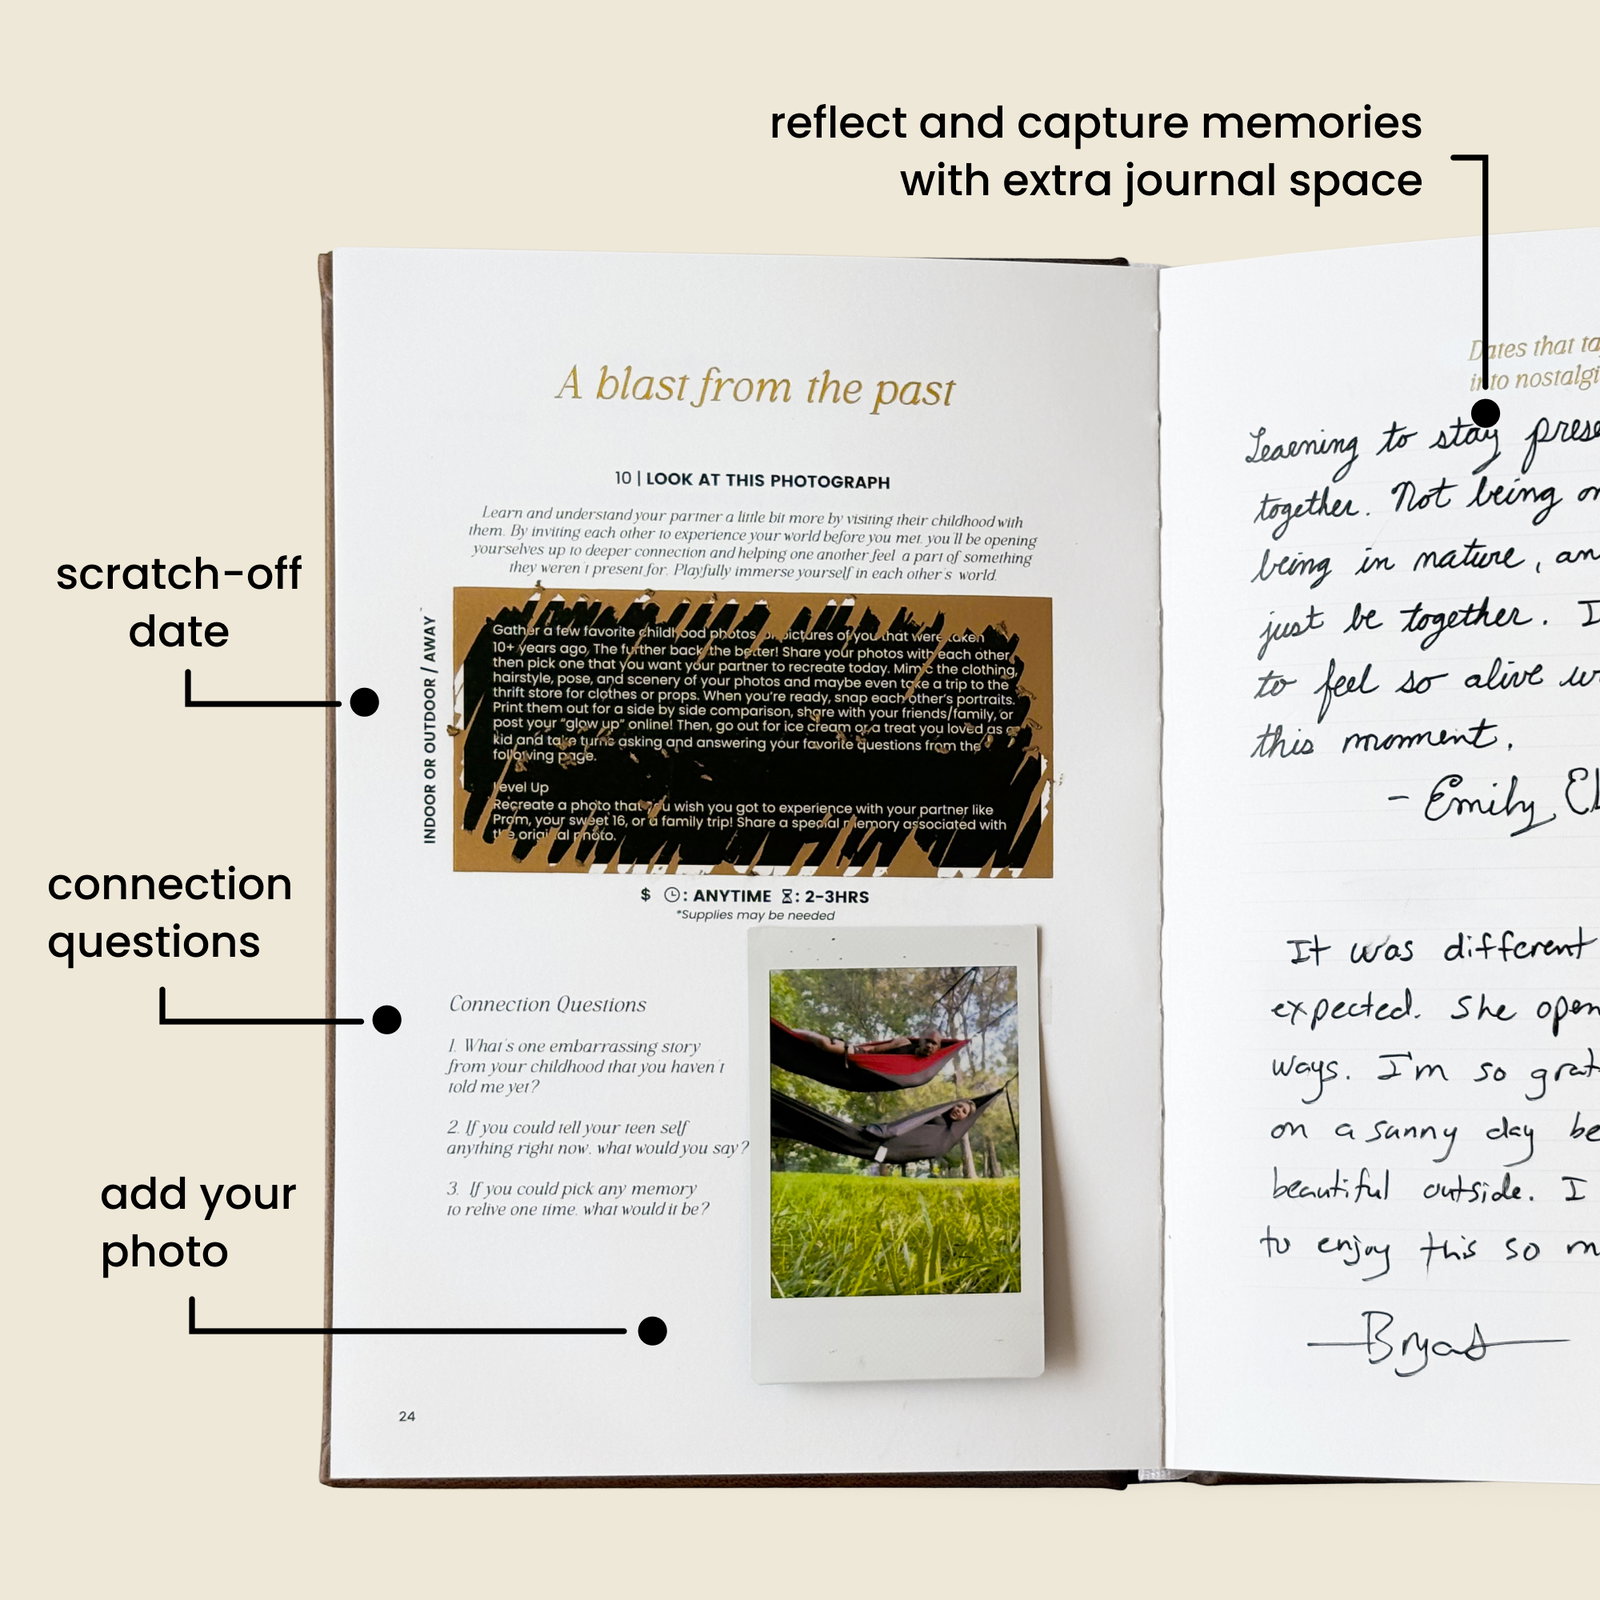 reflect and capture memories
with extra journal space
scratch-off
date
connection
questions
add your
photo
A blast from the past
10 | LOOK AT THIS PHOTOGRAPH
Learn and understand your partner a little bit more by visiting their childhood with
them. By inviting each other to experience your world before you met, you'll be opening
yourselves up to deeper connection and helping one another feel a part of something
they weren't present for. Playfully immerse yourself in each other's world.
INDOOR OR OUTDOOR / AWAY
Gather a few favorite childhood photos or pictures of you that were taken
10+ years ago, The further back the better! Share your photos with each other,
then pick one that you want your partner to recreate today. Mimic the clothing,
hairstyle, pose, and scenery of your photos and maybe even take a trip to the
thrift store for clothes or props. When you're ready, snap each other's portraits.
Print them out for a side by side comparison, share with your friends/family, or
post your "glow up" online! Then, go out for ice cream or a treat you loved as a
kid and take turns asking and answering your favorite questions from the
following page.
Level Up
Recreate a photo that you wish you got to experience with your partner like
Prom, your sweet 16, or a family trip! Share a special memory associated with
the original photo.
$ : ANYTIME : 2-3HRS
*Supplies may be needed
Connection Questions
1. What's one embarrassing story
from your childhood that you haven't
told me yet?
2. If you could tell your teen self
anything right now, what would you say?
3. If you could pick any memory
to relive one time, what would it be?
24
Dates that ta
into nostalgi
Learning to stay prese
together. Not being on
being in nature, an
just be together. I
to feel so alive w
this moment.
- Emily El
It was different
expected. She open
ways. I'm so grat
on a sunny day be
beautiful outside. I
to enjoy this so m
Bryant